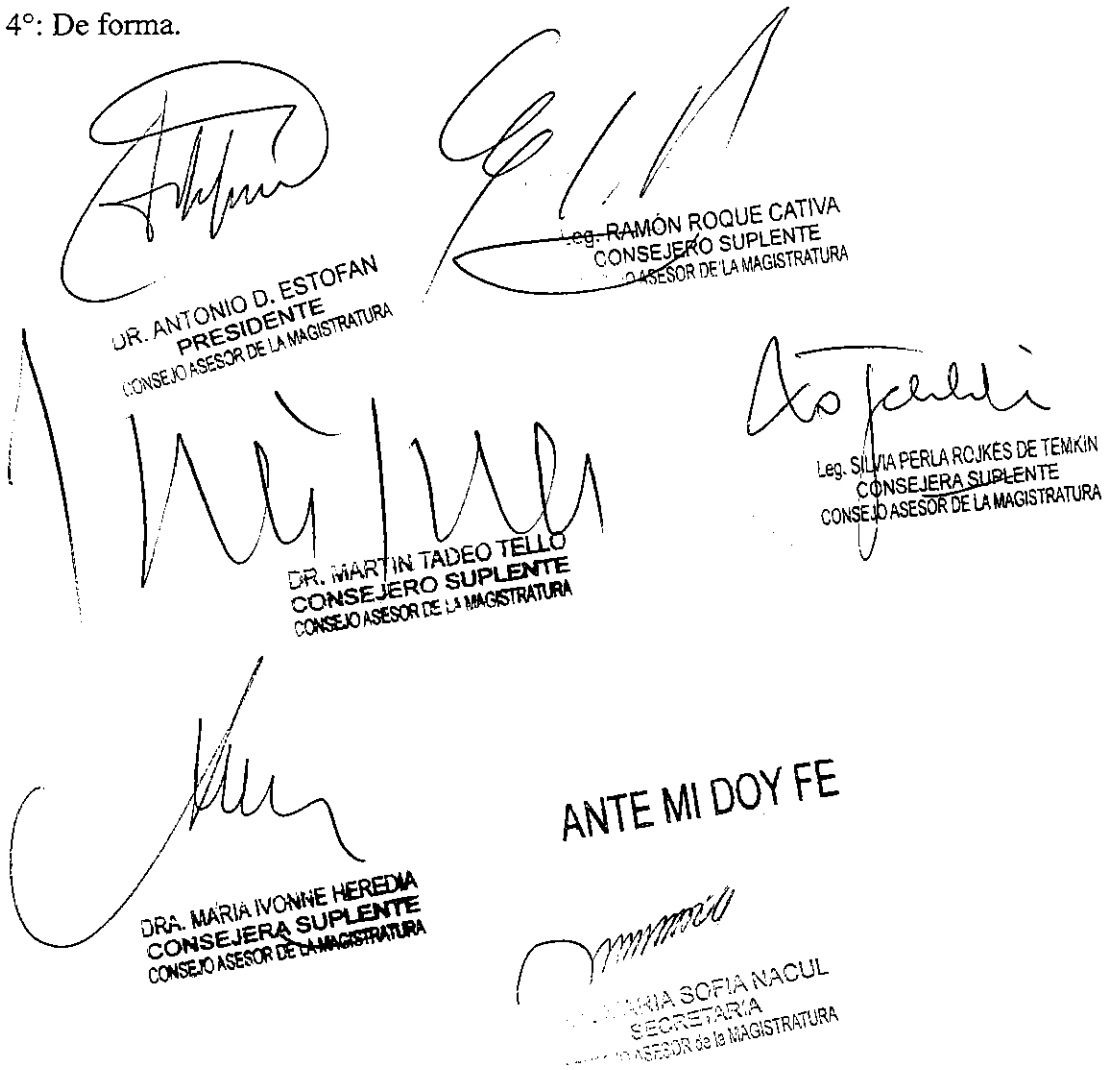 4°: De forma.
DR. ANTONIO D. ESTOFAN
PRESIDENTE
CONSEJO ASESOR DE LA MAGISTRATURA
Leg. RAMÓN ROQUE CATIVA
CONSEJERO SUPLENTE
ASESOR DE LA MAGISTRATURA
Leg. SILVIA PERLA ROJKES DE TEMKIN
CONSEJERA SUPLENTE
CONSEJO ASESOR DE LA MAGISTRATURA
DR. MARTIN TADEO TELLO
CONSEJERO SUPLENTE
CONSEJO ASESOR DE LA MAGISTRATURA
DRA. MARIA IVONNE HEREDIA
CONSEJERA SUPLENTE
CONSEJO ASESOR DE LA MAGISTRATURA
ANTE MI DOY FE
MARIA SOFIA NACUL
SECRETARIA
ASESOR de la MAGISTRATURA